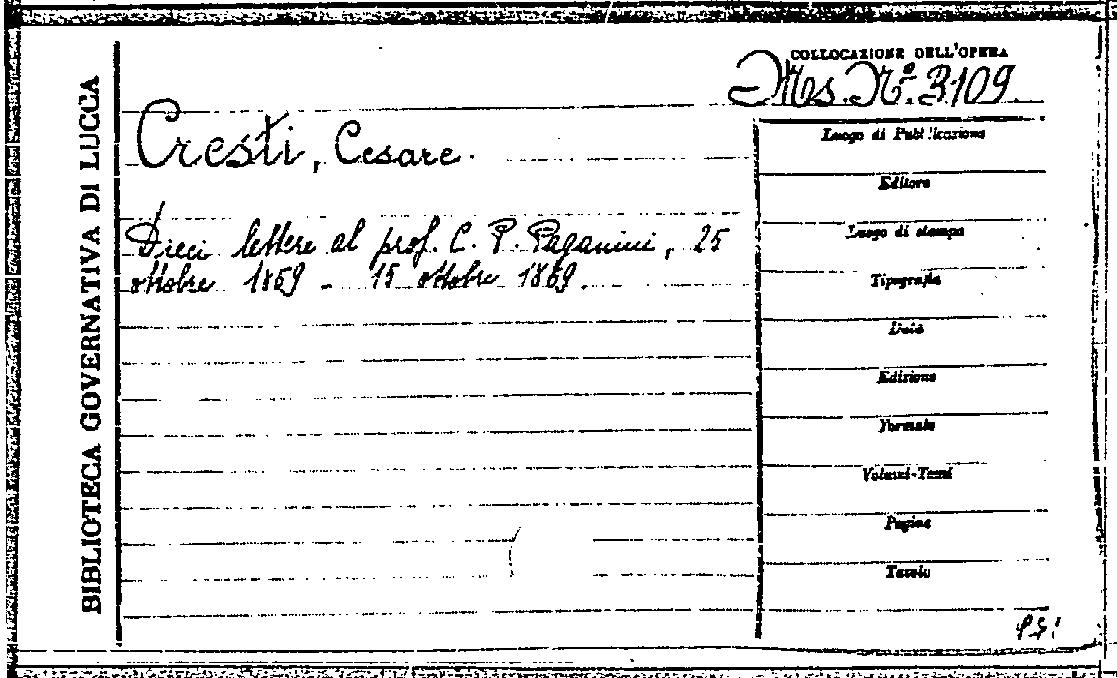 BIBLIOTECA GOVERNATIVA DI LUCCA
COLLOCAZIONE DELL'OPERA
Ms. N.º 3109.
Cresti, Cesare.
Dieci lettere al prof. C. P. Paganini, 25
ottobre 1869 - 15 ottobre 1869.
Luogo di Pubblicazione
Editore
Luogo di stampa
Tipografia
Data
Edizione
Formato
Volumi-Tomi
Pagine
Tavole